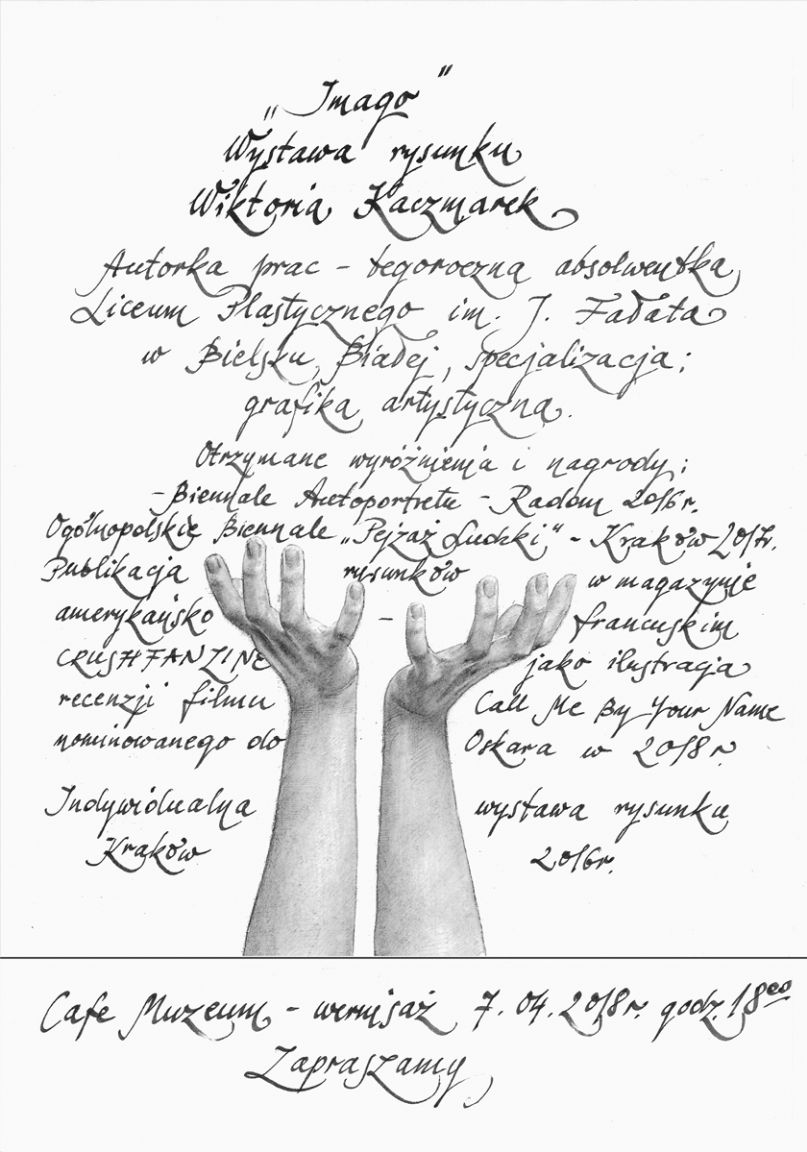 „Imago”
Wystawa rysunku
Wiktoria Kaczmarek
Autorka prac - tegoroczna absolwentka
Liceum Plastycznego im. J. Fałata
w Bielsku Białej, specjalizacja:
grafika artystyczna.
Otrzymane wyróżnienia i nagrody:
- Biennale Autoportretu - Radom 2016r.
Ogólnopolskie Biennale „Pejzaż Ludzki" - Kraków 2017r.
Publikacja rysunków w magazynie
amerykańsko - francuskim
CRUSHFANZINE jako ilustracja
recenzji filmu Call Me By Your Name
nominowanego do Oskara w 2018 r.
Indywidualna wystawa rysunku
Kraków 2016r.
Cafe Muzeum - wernisaż 7.04.2018r. godz. 18⁰⁰
Zapraszamy